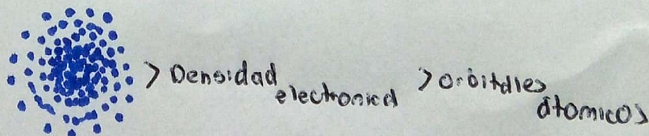 > Densidad electronica
> orbitales atomicos